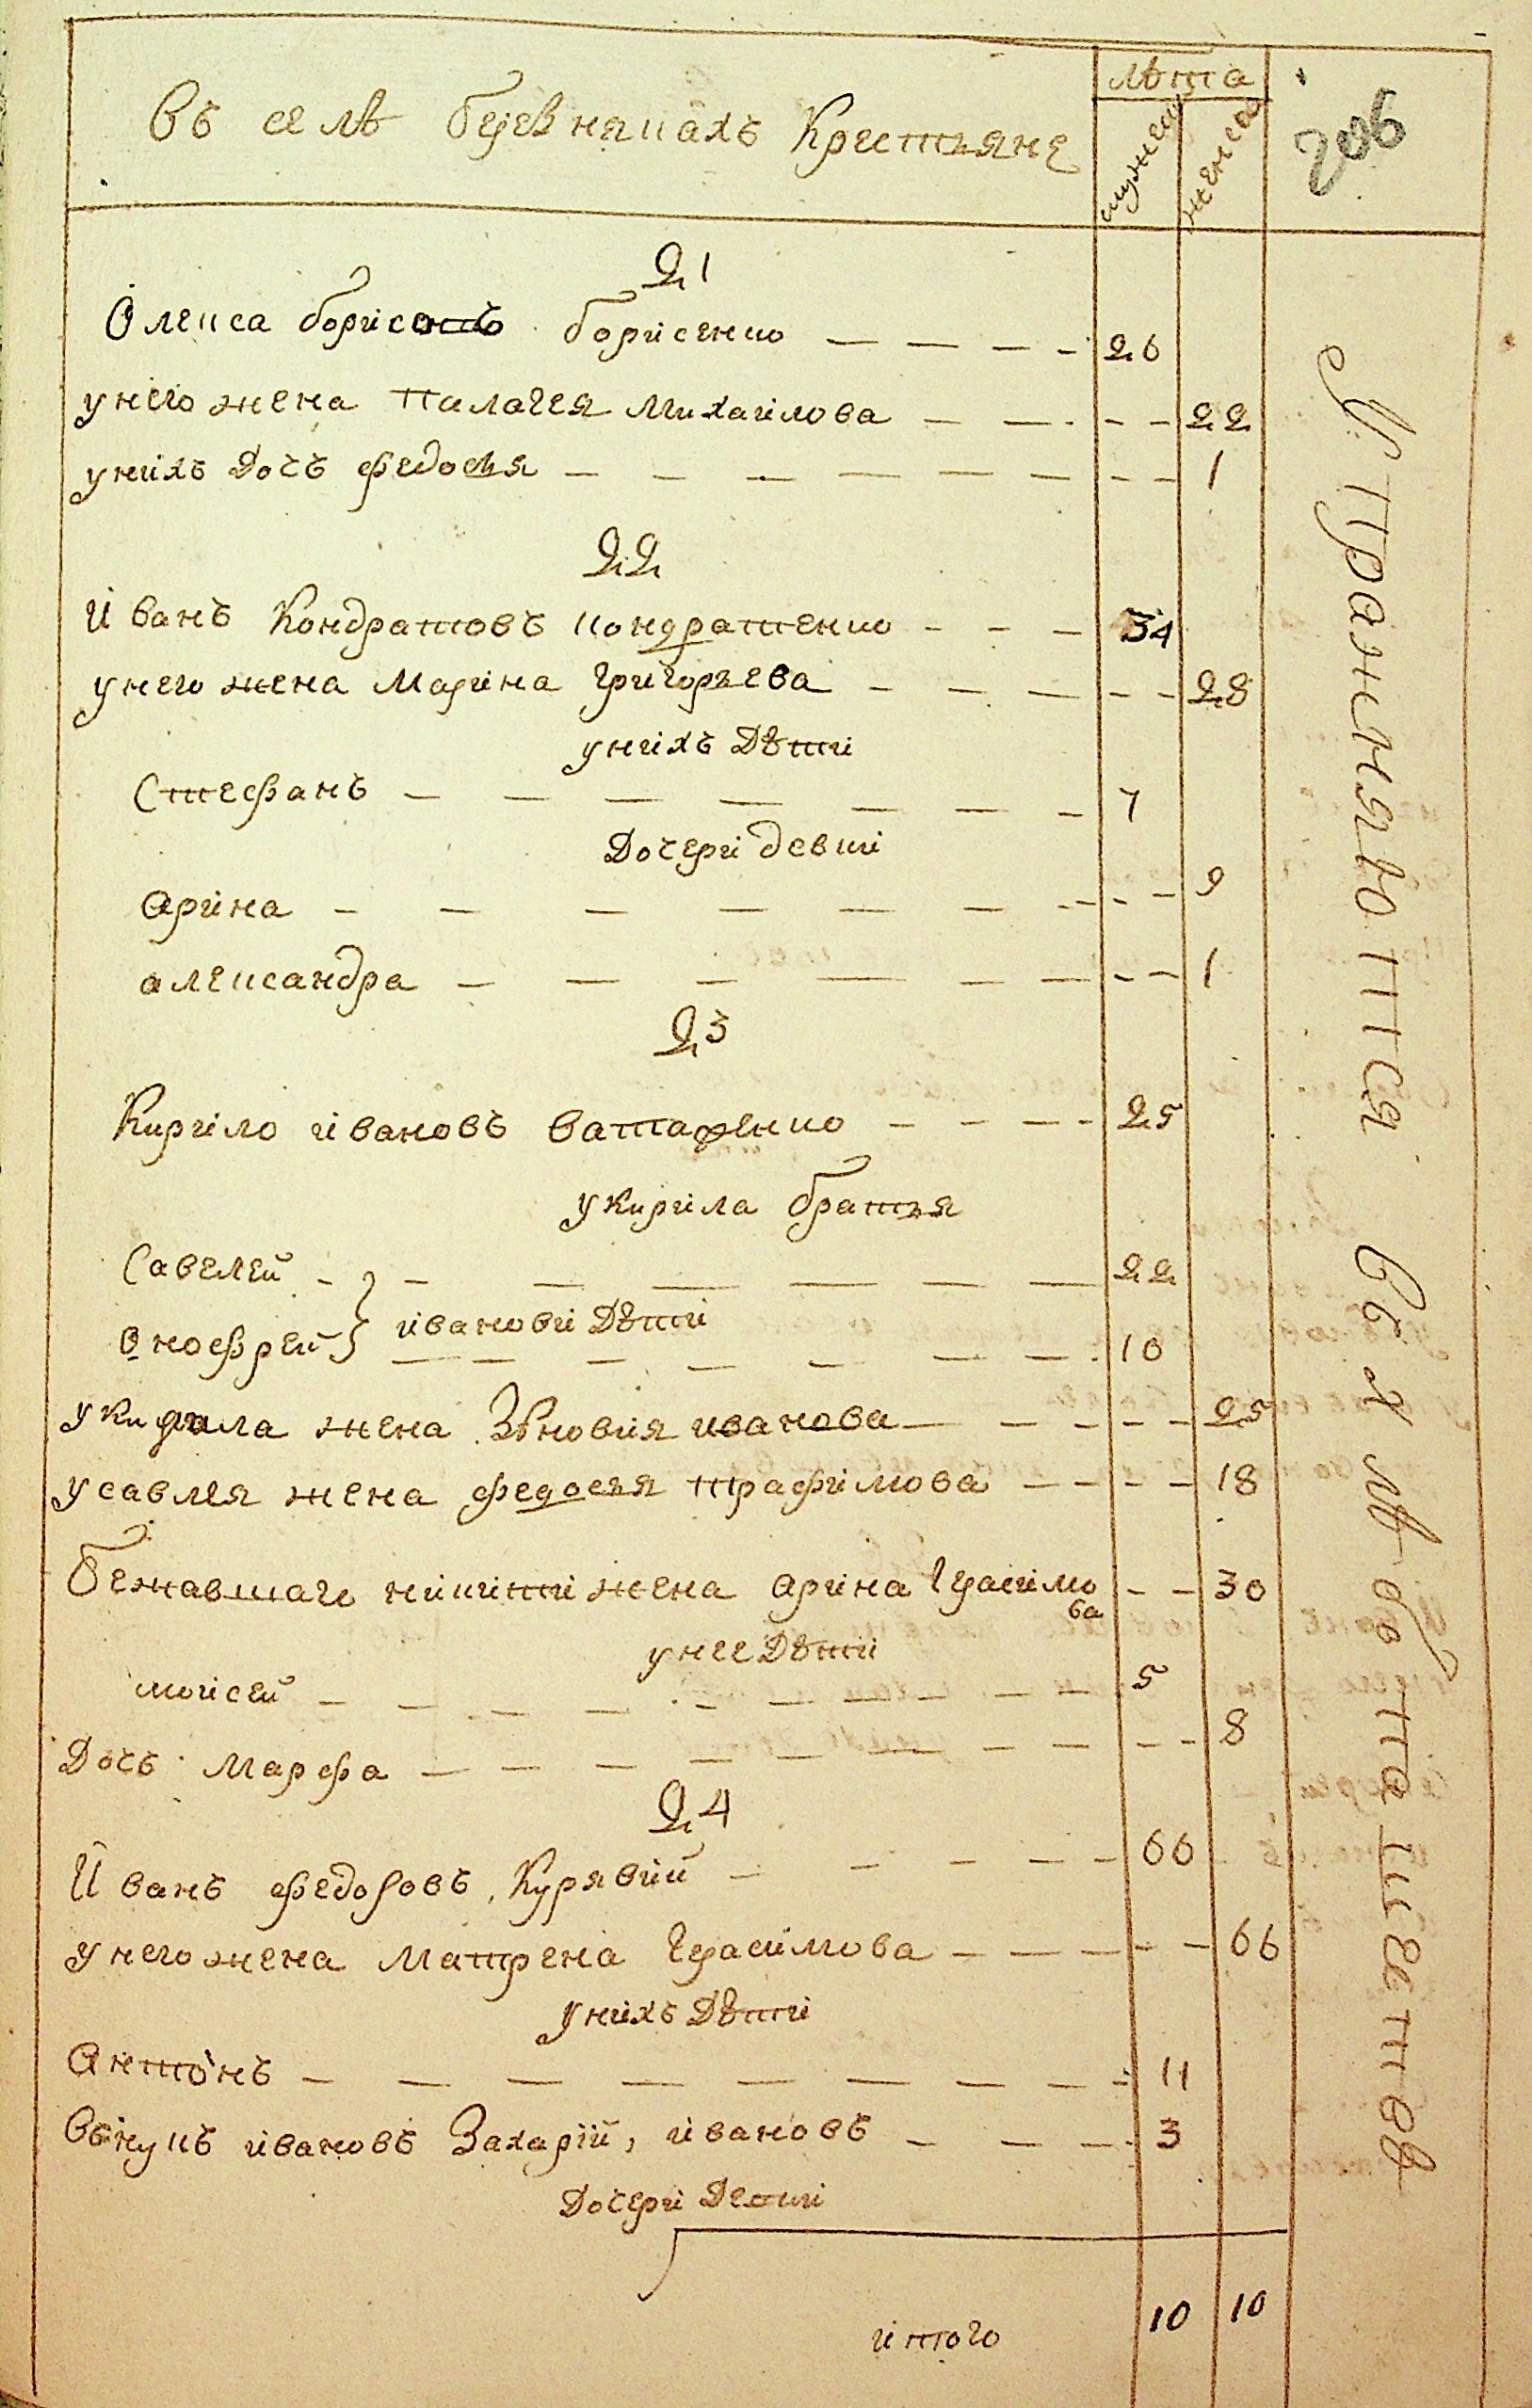 Въ селѣ Буевнякахъ Крестьяне
лѣта
мужеск
женска
206
21
Олекса борисовъ борисенко — — — — 26
унего жена палагея Михаилова — — — — 22
унихъ Дочъ федосья — — — — — — — — 1
22
Иванъ Кондратовъ кондратенко — — — 34
унего жена Марина григорьева — — — — — 28
унихъ Дѣти
Стефанъ — — — — — — — 7
Дочери девки
Арина — — — — — — — — — 9
александра — — — — — — — — 1
23
Кирило ивановъ ватаженко — — — — 25
укирила братья
Савелей — — — — — — — — 22
Онофрей } иванови Дѣти — — — — — — — 10
укирила жена Зѣновия иванова — — — — — 25
усавлея жена федосья трафимова — — — — 18
бежавшаго никити жена арина Герасимова — — 30
унее Дѣти
моисей — — — — — — — — 5
Дочъ Марфа — — — — — — — — — 8
24
Иванъ федоровъ Курявий — — — — — 66
унего жена Матрена Герасимова — — — — — 66
унихъ Дѣти
Антонъ — — — — — — — — — 11
Внукъ ивановъ Захарій, ивановъ — — — 3
Дочери Девки
итого 10 10
Упражняются
въ хлѣбопашестве